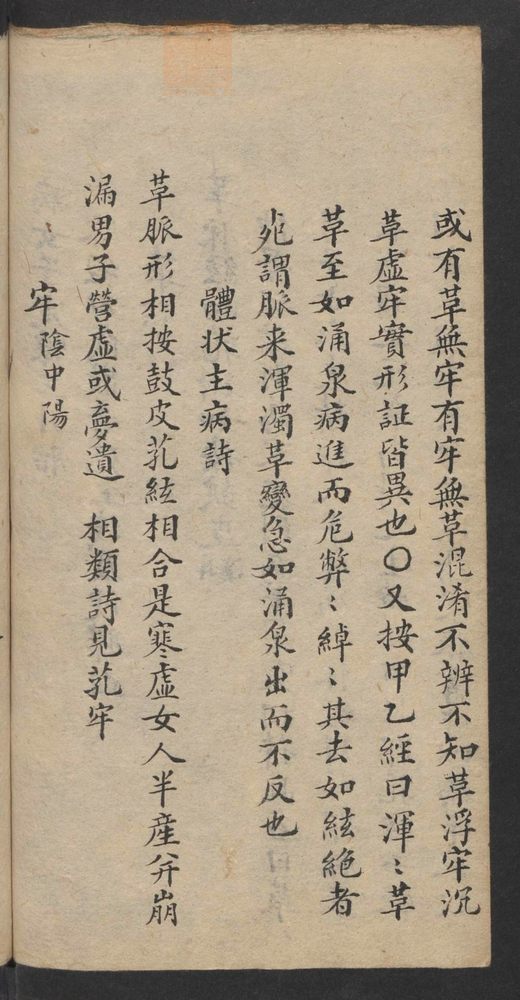 或有草無牢有牢無草混淆不辨不知草浮牢沉
草虛牢實形証皆異也〇又按甲乙經曰渾〻草
草至如涌泉病進而危弊〻綽〻其去如絃絶者
死謂脈来渾濁草變急如涌泉出而不反也
體状主病詩
草脈形相按鼓皮芤絃相合是寒虛女人半產并崩
漏男子營虛或夢遺 相類詩見芤牢
牢 陰中陽